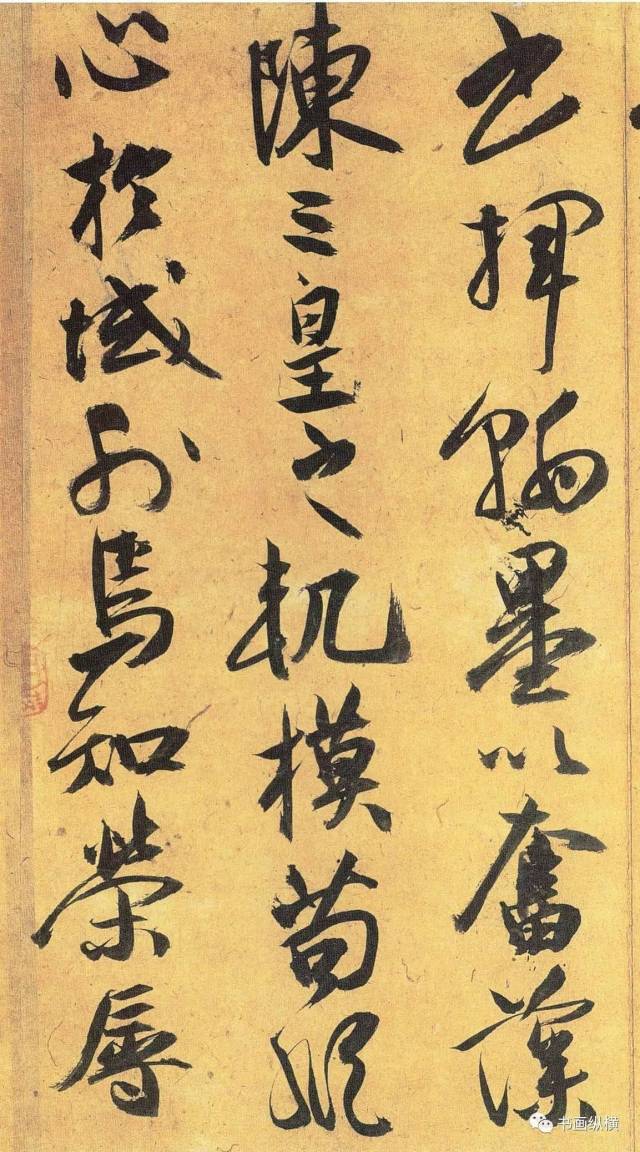 書揮翰墨以奮藻
陳三皇之軌模苟縱
心於域外焉知榮辱
书画纵横